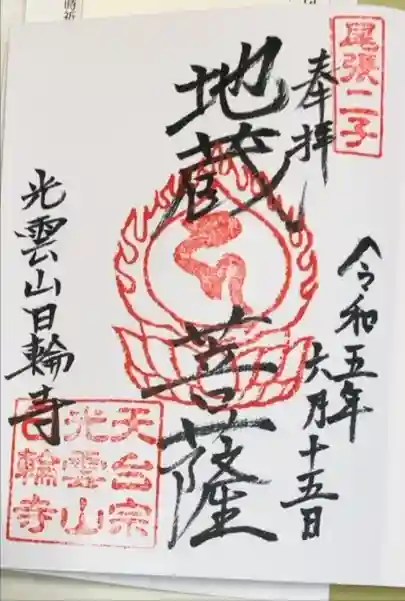 尾張二子
奉拝
令和五年
六月十五日
地蔵菩薩
光雲山日輪寺
天台宗
光雲山
日輪寺